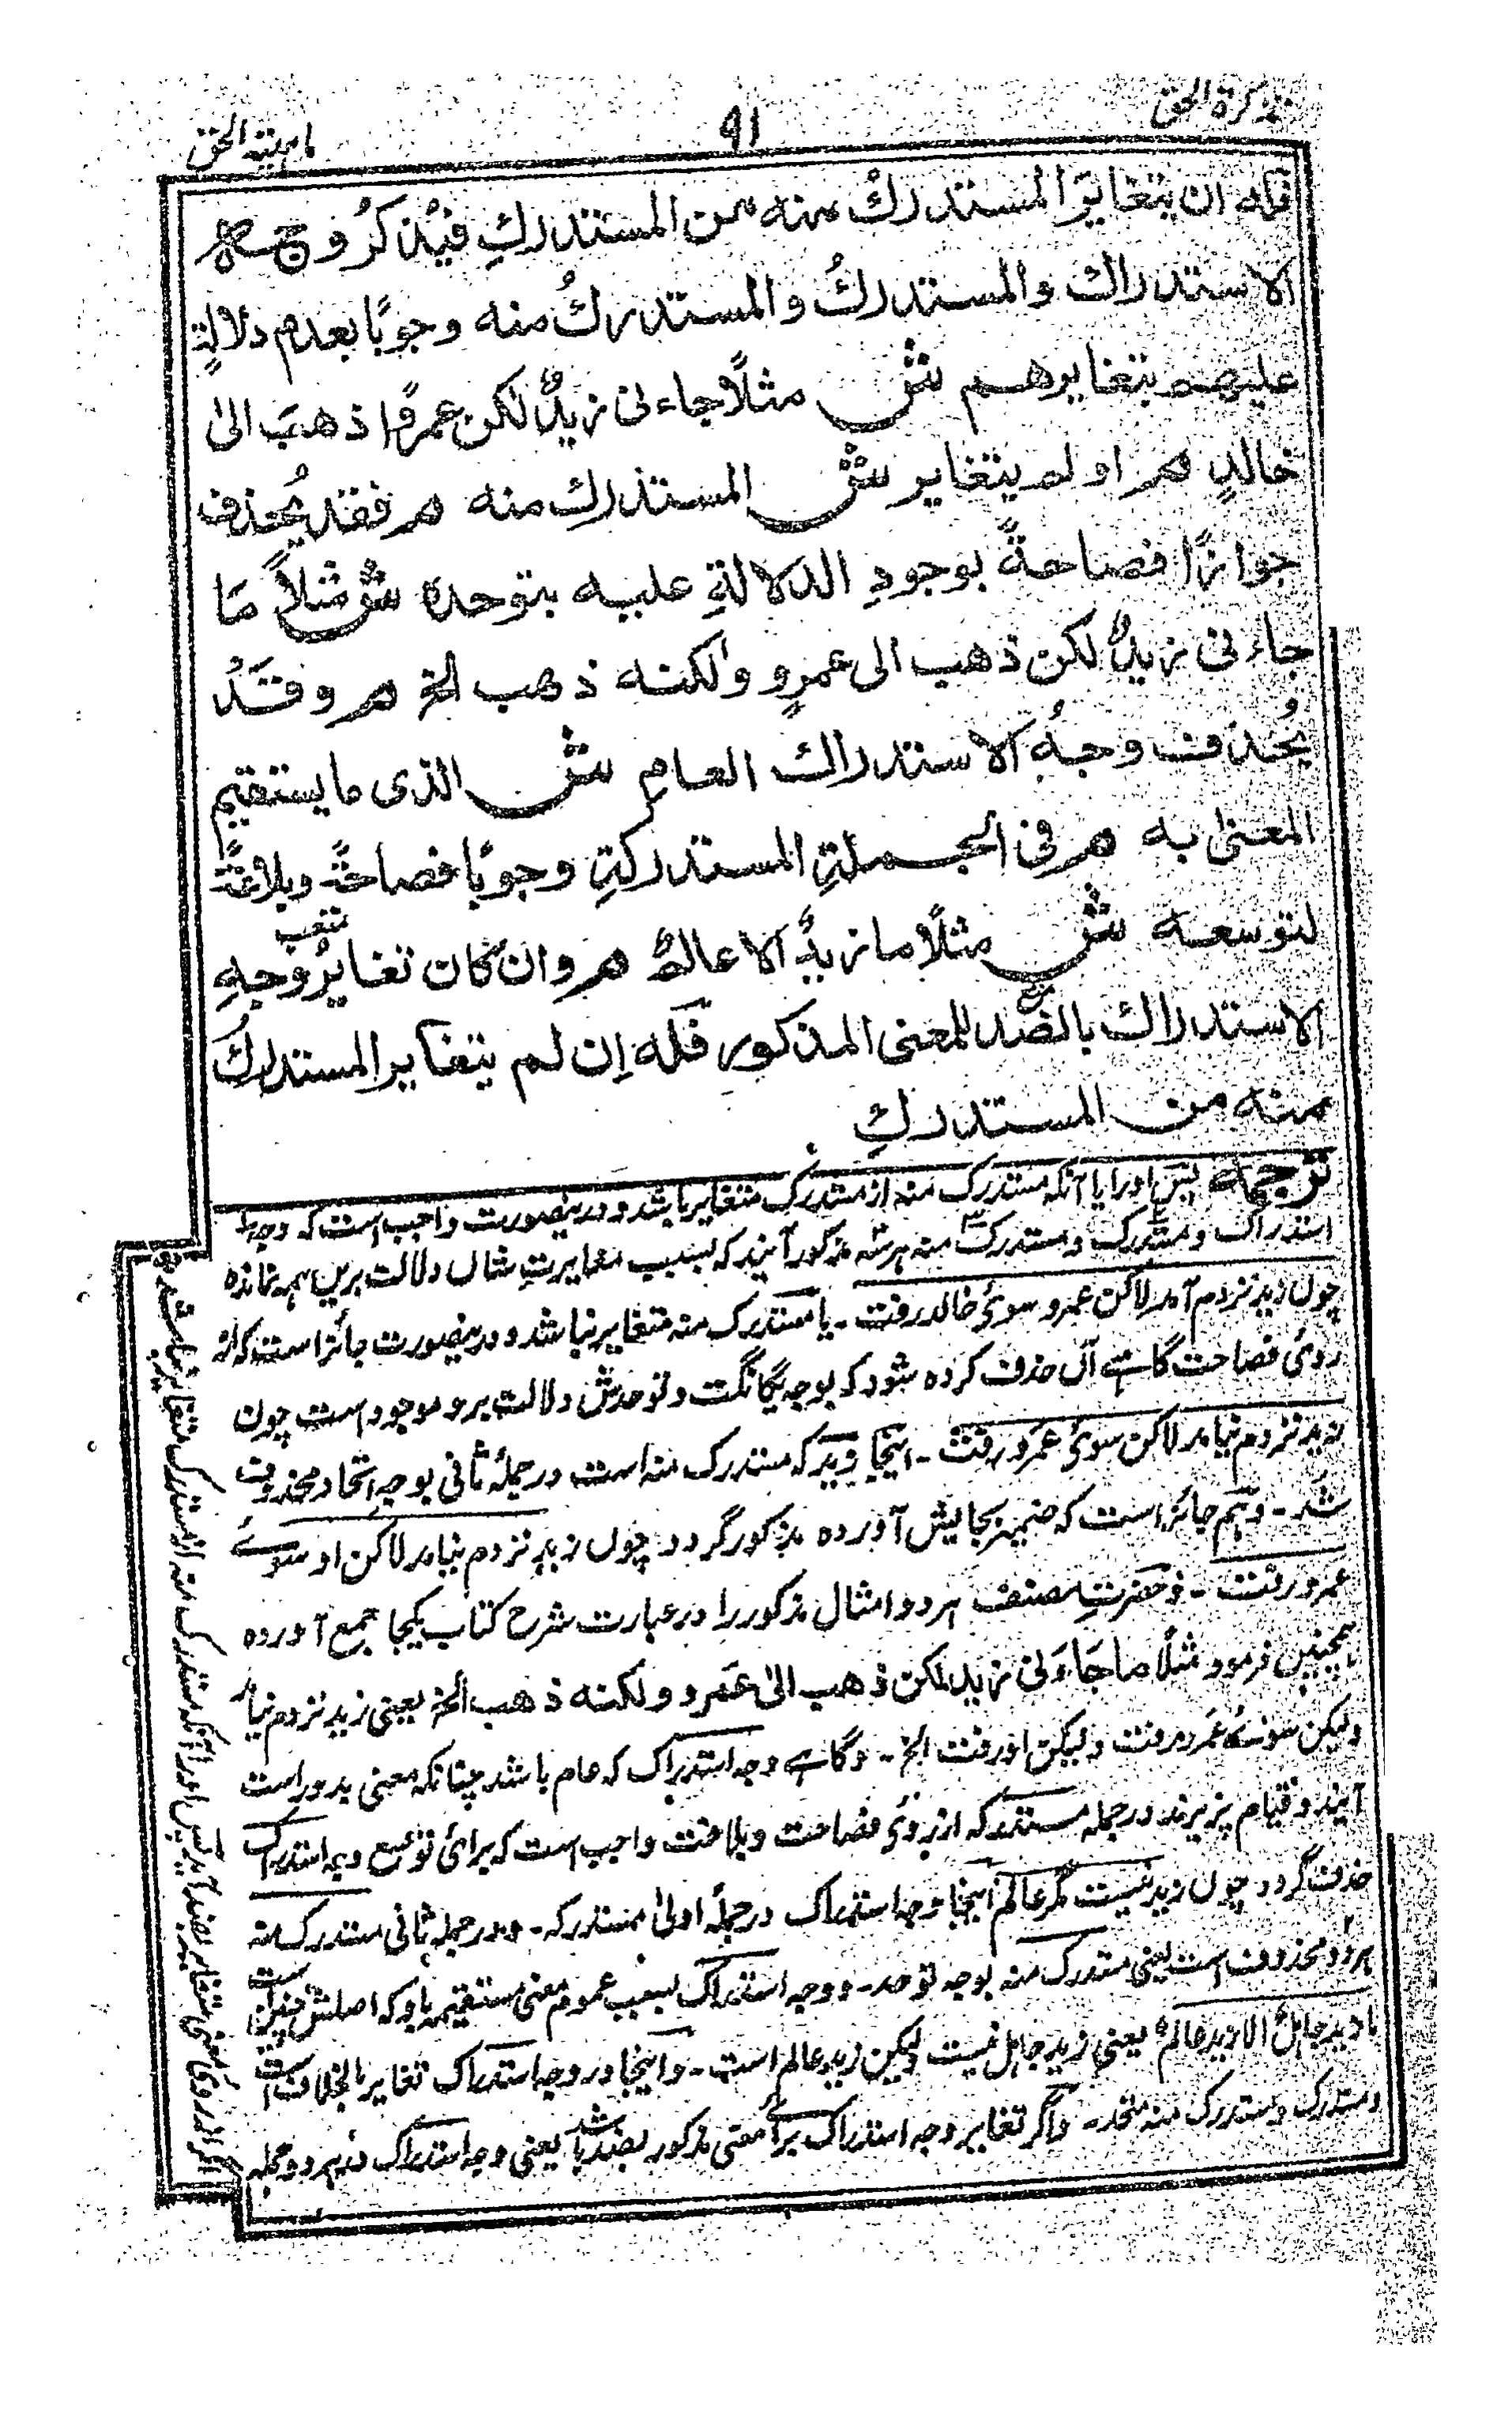 تذکرة الحق
۹۱
ماهیته الحق
فله ان یتغایر المستدرکُ منه من المستدرکِ فیُذکرُ وجه
الاستدراک والمستدرکُ والمستدرکُ منه وجوبًا بعدم دلالةٍ
علیهم بتغایرهم ش مثلًا جاءنی زیدٌ لکن عمروًا ذهبَ الیٰ
خالدٍ هم او لم یتغایر ش المستدرکِ منه هم فقد یُحذف
جوازًا فصاحةً بوجودِ الدلالةِ علیه بتوحده ش مثلًا مَا
جاءنی زیدٌ لکن ذهب الی عمرٍو ولکنه ذهب الخ هم وقَد
یُحذف وجهُ الاستدراک العام ش الذی ما یستقیم
المعنیٰ به هم فی الجملةِ المستدرکةِ وجوبًا فصاحةً وبلاغةً
لتوسعه ش مثلًا ما زیدٌ الا عالمٌ هم وان کان تغایرُ وجهِ
الاستدراک بالضد للمعنی المذکور فله اِن لم یتغایر المستدرکُ
منه من المستدرکِ
ترجمه پس او را یا آنکه مستدرک منه از مستدرک متغایر باشد و درینصورت واجب است که وجه
استدراک و مستدرک و مستدرک منه هر سه مذکور آیند که بسبب مغایرتِ شان دلالت برین همه نمانده
چون زید نزدم آمد لاکن عمرو سوئ خالد رفت - یا مستدرک منه متغایر نباشد و درینصورت جائز است که از
روئ فصاحت گاهے آن حذف کرده شود که بوجه یگانگت و توحدش دلالت برو موجود است چون
زید نزدم نیامد لاکن سوئ عمرو رفت - اینجا زید که مستدرک منه است در جملهٔ ثانی بوجه اتحاد محذوف
شد - و هم جائز است که ضمیر بجایش آورده مذکور گردد چون زید نزدم نیامد لاکن او سوے
عمرو رفت - و حضرتِ مصنف هر دو امثال مذکور را در عبارت شرح کتاب یکجا جمع آورده
همچنین فرمود مثلًا ما جاءَنی زید لکن ذهب الیٰ عَمرو ولکنه ذهب الخ یعنی زید نزدم نیامد
ولیکن سوئے عمرو رفت ولیکن او رفت الخ - و گاهے وجه استدراک که عام باشد چنانکه معنی بدو راست
آیند و قیام پزیرند در جمله مستدرکه از روئ فصاحت و بلاغت واجب است که برائ توسیع وجه استدراک
حذف گردد چون زید نیست مگر عالم اینجا وجه استدراک در جملهٔ اولیٰ مستدرکه - و در جمله ثانی مستدرک منه
هر دو محذوف است یعنی مستدرک منه بوجه توحد - و وجه استدراک بسبب عموم معنی مستقیم باو که اصلش چنین است
ما زید جاهلٌ الا زید عالمٌ یعنی زید جاهل نیست لیکن زید عالم است - و اینجا در وجه استدراک تغایر بالخلاف است
و مستدرک و مستدرک منه متحد - و اگر تغایر وجه استدراک برائے معنی مذکور بضد باشد یعنی وجه استدراک در هر دو جمله
اگر از روئ معنی متغایر بضد آید پس او را آنکه مستدرک منه از مستدرک متغایر نباشد